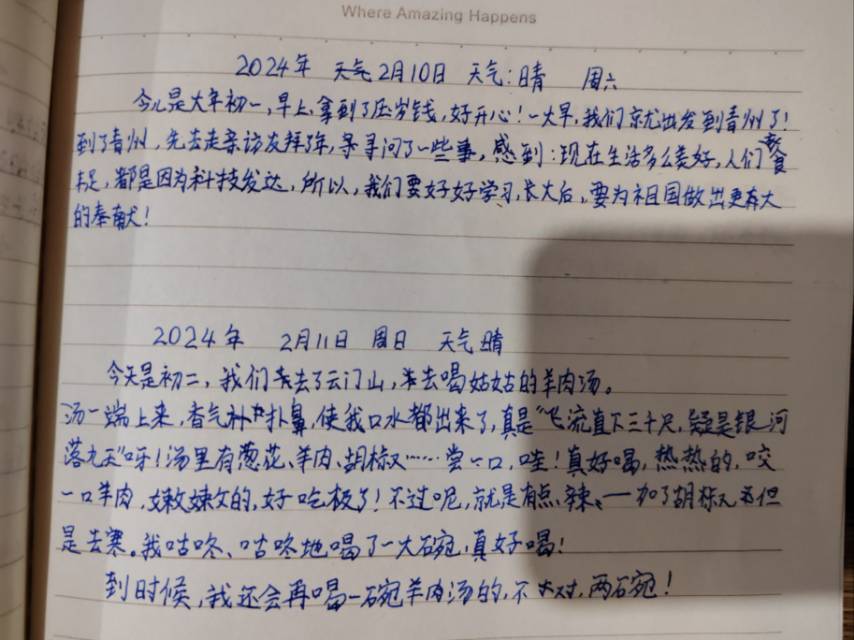 Where Amazing Happens
2024年 天气2月10日 天气:晴 周六
今儿是大年初一,早上拿到了压岁钱,好开心!一大早,我们就出发到青州了!
到了青州,先去走亲访友拜了年,寻寻问了一些事,感到:现在生活多么美好,人们衣食
丰足,都是因为科技发达,所以,我们要好好学习,长大后,要为祖国做出更大
的奉献!
2024年 2月11日 周日 天气 晴
今天是初二,我们去了云门山,去喝姑姑的羊肉汤。
汤一端上来,香气扑鼻,使我口水都出来了,真是“飞流直下三千尺,疑是银河
落九天”呀!汤里有葱花、羊肉、胡椒……尝一口,哇!真好喝,热热的,咬
一口羊肉,嫩嫩的,好吃极了!不过呢,就是有点辣、一加了胡椒但
是去寒。我咕咚、咕咚地喝了一大碗,真好喝!
到时候,我还会再喝一碗羊肉汤的,不对,两碗!